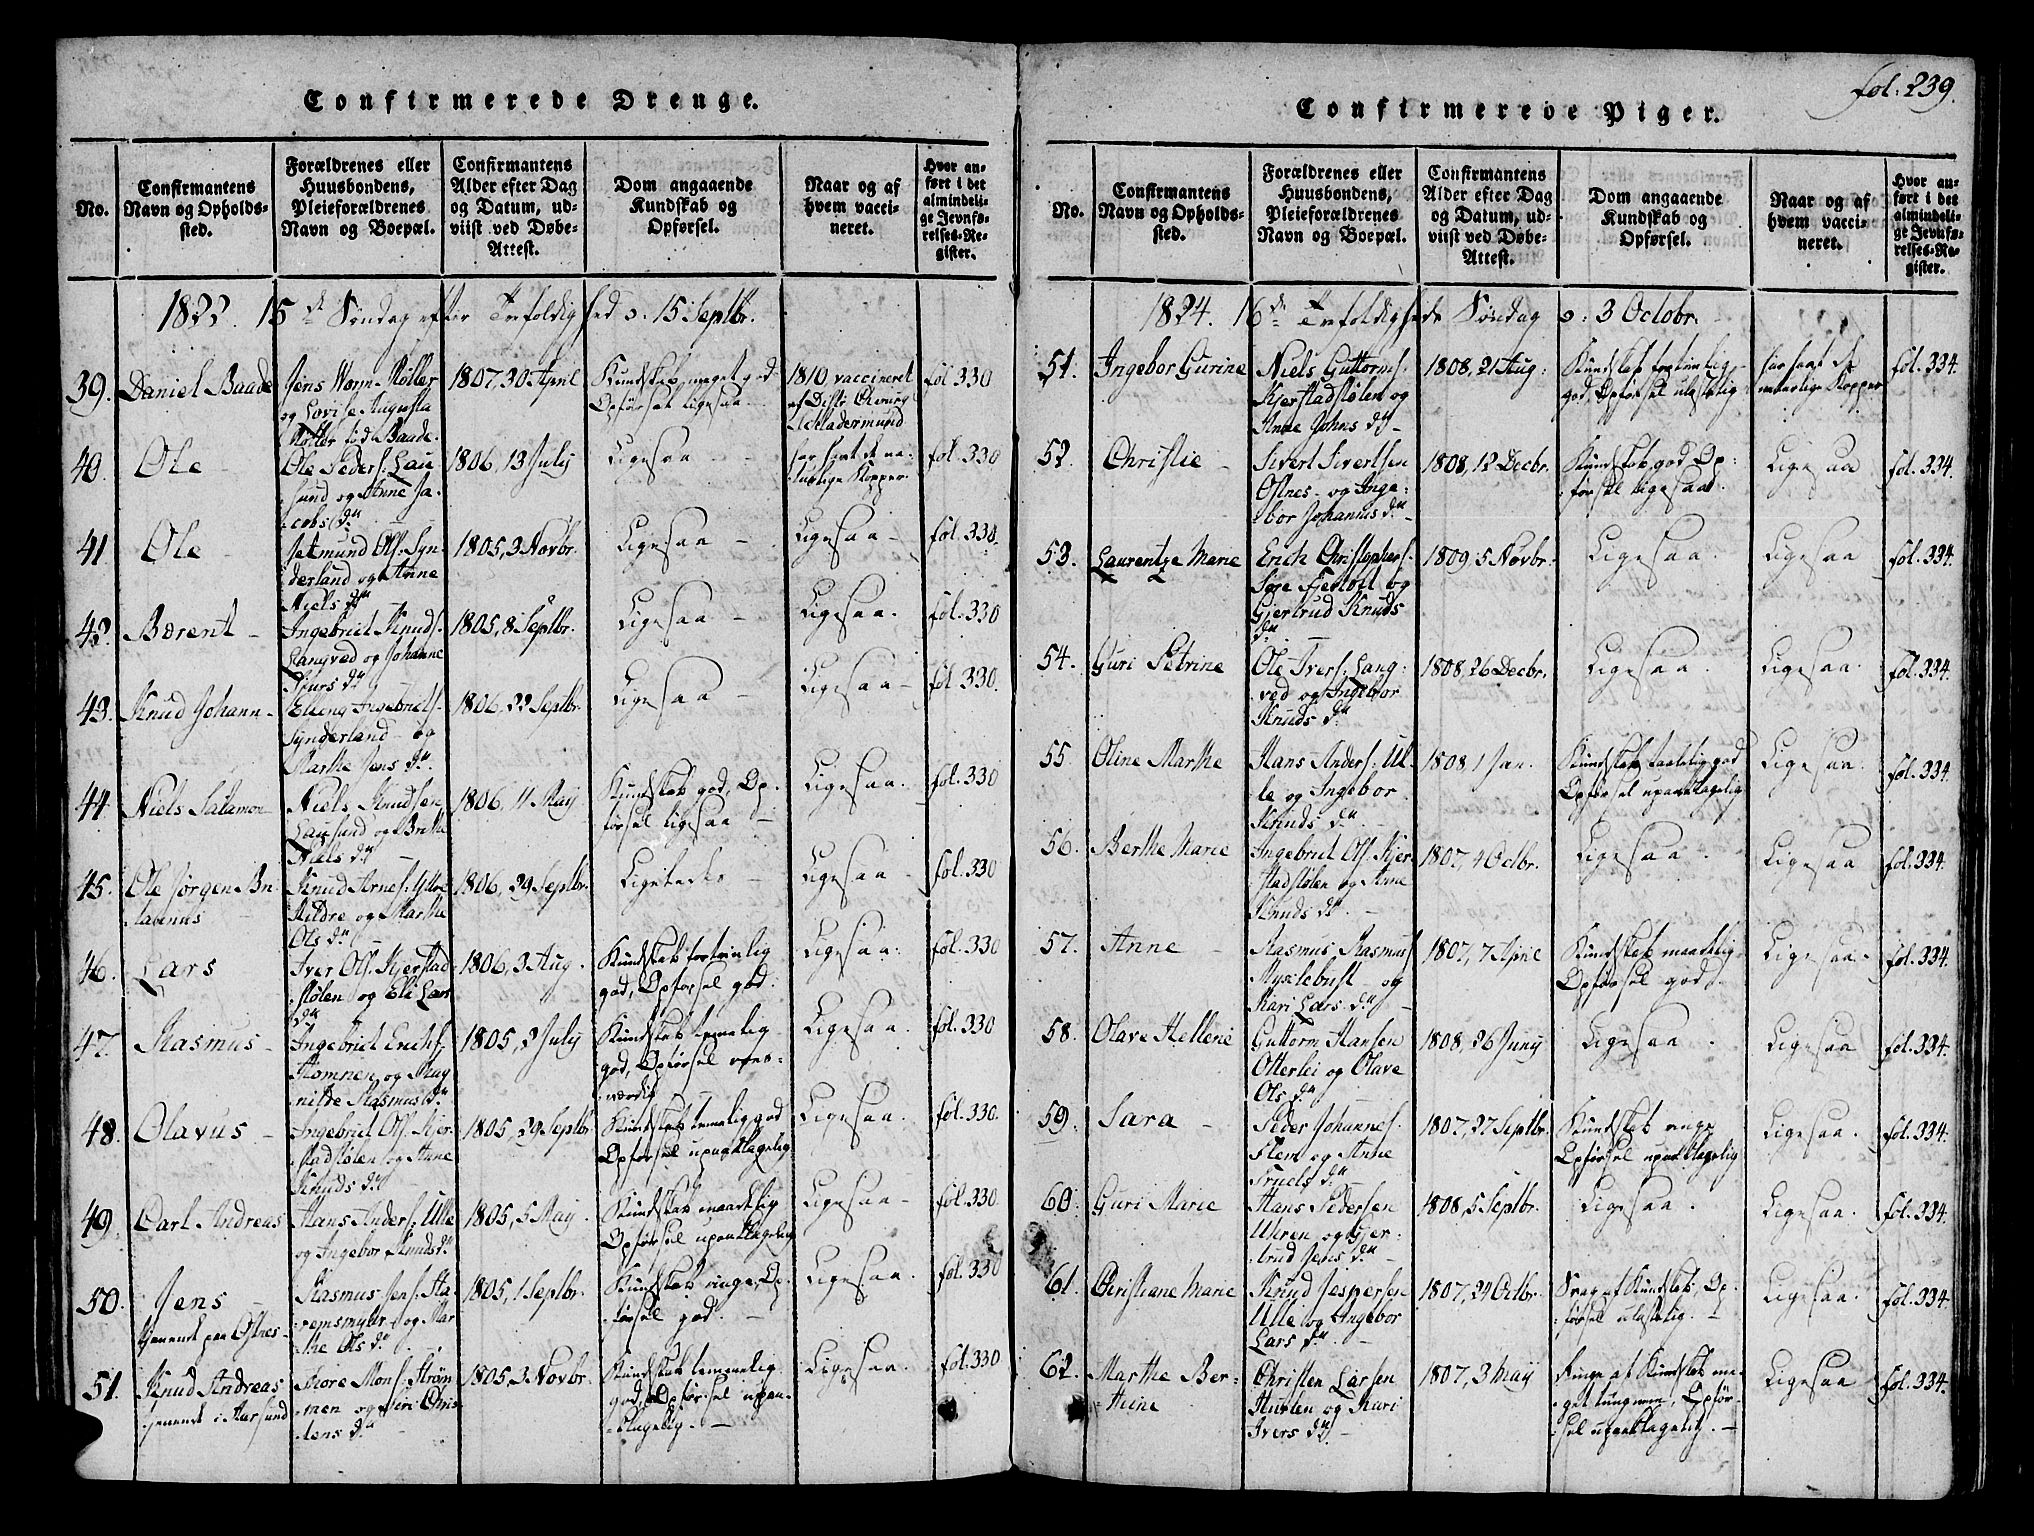 Confirmerede Drenge.
No.
Confirmantens
Navn og Opholds-
sted.
Forældrenes eller
Huusbondens,
Pleieforældrenes
Navn og Boepæl.
Confirmantens
Alder efter Dag
og Datum, ud-
viist ved Døbe-
Attest.
Dom angaaende
Kundskab og
Opførsel.
Naar og af
hvem vacci-
neret.
Hvor an-
ført i det
almindeli-
ge Jevnfø-
relses-Re-
gister.
1822. 15de Søndag efter Trefoldighed o: 15 Septbr.
39. Daniel Baade
Jens Worm Møller
og Lovise Augusta
Møller fød Baade.
1807, 30 April
Kundskab meget god
Opførsel ligesaa
1810 vaccineret
fol 330
40. Ole
Ole Peders. Lau-
sund og Anne Ja-
cobs dr
1806, 13 July
Ligesaa
har havt de na-
turlige Kopper
fol. 330
41 Ole
Jetmund Ols. Syn-
derland og Anne
Niels dr
1805, 3 Novbr.
Ligesaa
Ligesaa
fol. 330
42. Bærent
Ingebrict Knuds.
Langved og Johanne
dr
1805, 8 Septbr.
Ligesaa
Ligesaa.
fol. 330
43. Knud Johann
Elling Ingebriets.
Synderland og
Marthe Jens dr.
1806, 22 Septbr.
Ligesaa
Ligesaa
fol 330.
44. Niels Salamon
Niels Knudsen
Lausund og Brethe
Niels dr
1806, 11 May
Kundskab god, Op-
førsel ligesaa
Ligesaa
fol. 330
45. Ole Jørgen Bn-
Knud Arnes. Yttre
Kildre og Marthe
Ols dr
1806, 29 Septbr.
Ligeledes
Ligesaa
fol. 330
46. Lars
Iver Ols. Kjerstad
støløn og Eli Lars
dr
1806, 3 Aug.
Kundskab fortrinlig
god, Opførsel god.
Ligesaa.
fol. 330
47. Rasmus
Ingebrict Erichs.
Hamnen og Mag-
nilde Rasmus dr
1805, 2 July
Kundskab temelig
god, Opførsel roes-
værdig
Ligesaa.
fol. 330
48. Olavus
Ingebrict Ols. Kjer-
stadstølen og Anne
Knuds dr
1805, 29 Septbr.
Kundskab temelig god
Opførsel upaaklagelig
Ligesaa.
fol. 330.
49. Carl Andreas
Hans Anders. Ulle
og Ingebor Knuds dr
1805, 5 May
Kundskab maadelig
Opførsel upaaklagelig
Ligesaa
fol. 330
50. Jens
tjenende paa Østnes
Rasmus Jens. Ha-
remsmyhr og Mar-
the Ols dr
1805, 1 Septbr.
Kundskab ringe, Op-
førsel god.
Ligesaa.
fol. 330
51. Knud Andreas
tjenende i Aarsund
Thore Mons. Strøm
men og Siri Chris-
tens dr
1805, 3 Novbr.
Kundskab temmelig
god, Opførsel upaa-
klagelig.
Ligesaa.
fol. 330
fol. 239.
Confirmerede Piger.
No.
Confirmantens
Navn og Opholds-
sted.
Forældrenes eller
Huusbondens,
Pleieforældrenes
Navn og Boepæl.
Confirmantens
Alder efter Dag
og Datum, ud-
viist ved Døbe-
Attest.
Dom angaaende
Kundskab og
Opførsel.
Naar og af
hvem vacci-
neret.
Hvor an-
ført i det
almindeli-
ge Jevnfø-
relses-Re-
gister.
1824. 16de Trefoldigheds Søndag o: 3 Octobr.
51. Ingebor Gurine
Niels Guttorms.
Kjerstadstølen og
Anne Johns dr
1808, 21 Aug:
Kundskab fortrinlig
god, Opførsel ulastelig
har havt de
naturlige Kopper
fol. 334.
52. Christie
Sivert Sivertsen
Østnes og Inge-
bor Johannis dr
1808, 12 Decbr.
Kundskab god, Op-
førsel ligesaa.
Ligesaa
fol. 334.
53. Laurentze Marie
Erich Christophers.
Søre Fjertoft og
Gjertrud Knuds
dr
1809, 5 Novbr.
Ligesaa.
Ligesaa
fol. 334.
54. Guri Petrine
Ole Ivers. Lang-
ved og Ingebor
Knuds dr.
1808, 26 Decbr.
Ligesaa
Ligesaa.
fol. 334.
55. Oline Marthe
Hans Anders. Ul-
le og Ingebor
Knuds dr.
1808, 1 Jan.
Kundskab taalelig god
Opførsel upaaklagelig
Ligesaa.
fol. 334
56. Berthe Marie
Ingebrict Ols. Kjer-
stadstølen og Anne
Knuds dr.
1807, 4 Octbr.
Ligesaa.
Ligesaa
fol. 334.
57. Anne
Rasmus Rasmus.
Myklebust og
Kari Lars dr
1807, 7 April
Kundskab maadelig
Opførsel god.
Ligesaa.
fol. 334.
58. Olave Hellene
Guttorm Hansen
Otterlei og Olave
Ols dr
1808, 26 Juny
Ligesaa.
Ligesaa
fol. 334.
59. Sara
Peder Johannes.
Flem og Anne
Truels dr
1807, 27 Septbr.
Kundskab ringe
Opførsel upaaklagelig
Ligesaa.
fol. 334.
60. Guri Marie
Hans Pedersen
Uhren og Gjer-
trud Jens dr
1808, 5 Septbr.
Ligesaa.
Ligesaa.
fol. 334.
61. Christiane Marie
Knud Jespersen
Ulle og Ingebor
Lars dr.
1807, 24 Octbr.
Svag af Kundskab, Op-
førsel ulastelig.
Ligesaa.
fol. 334.
62. Marthe Ber-
thine
Christen Larsen
Hurlen og Kari
Ivers dr
1807, 3 May
Ringe af Kundskab me-
get tungnem, Opfør-
sel upaaklagelig.
Ligesaa
fol. 334.